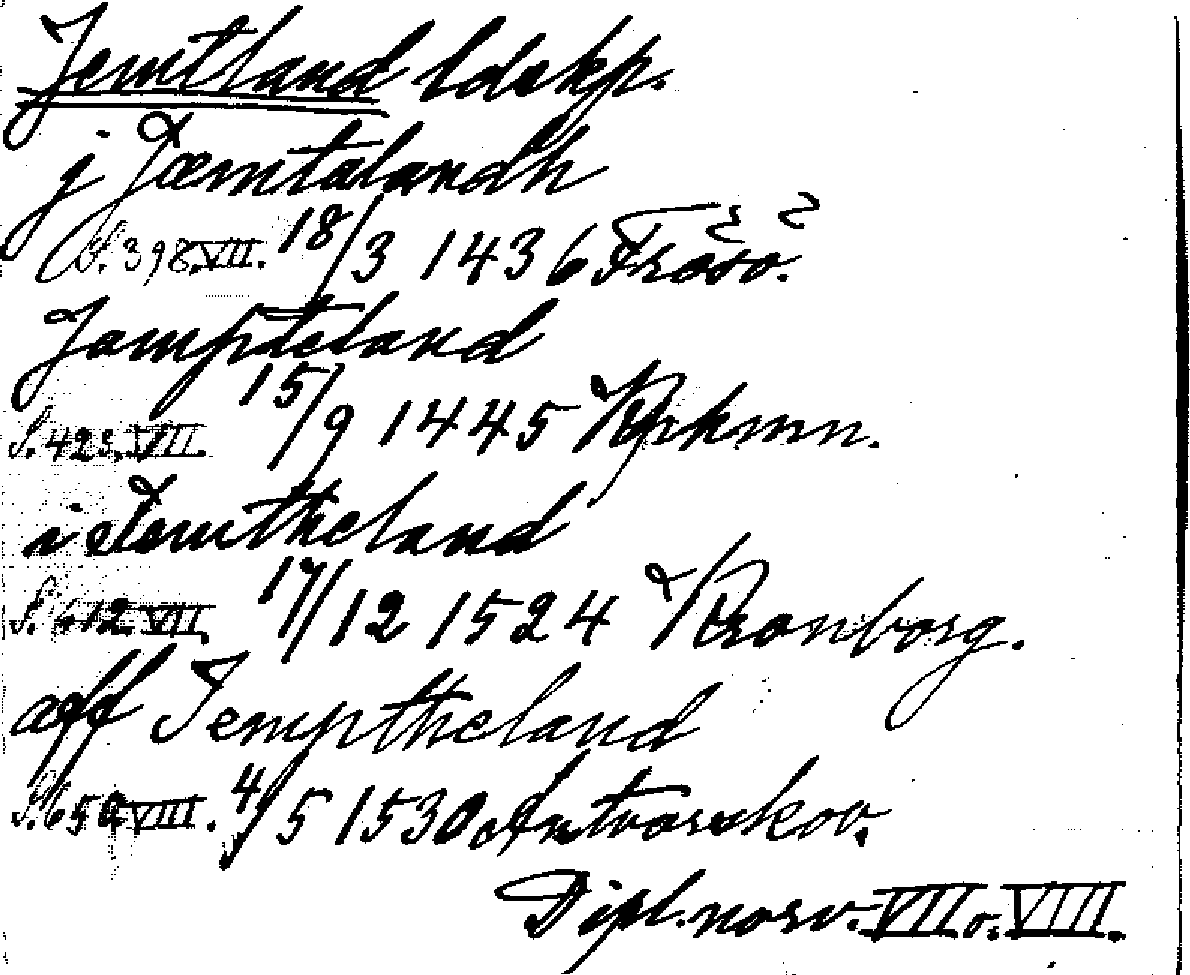 Jemtland ldskp.
j Jæmtalandh
S. 398. VII. 18/3 1436 Frösö.
Jampteland
S. 423. VII. 15/9 1445 Kbhmn.
i Jemtheland
S. 612. VII. 17/12 1524 Kronborg.
aff Jemptheland
S. 650 VIII. 4/5 1530 Antvorskov.
Dipl. norv. VII o. VIII.